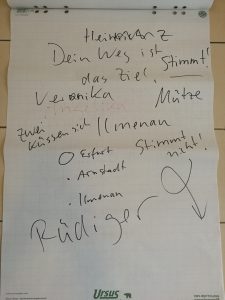 Dein Weg ist
das Ziel,
Stimmt!
Veronika
Mütze
zwei
küssen sich
Ilmenau
Erfurt
Arnstadt
Ilmenau
Stimmt
nicht!
Rüdiger
Ursus